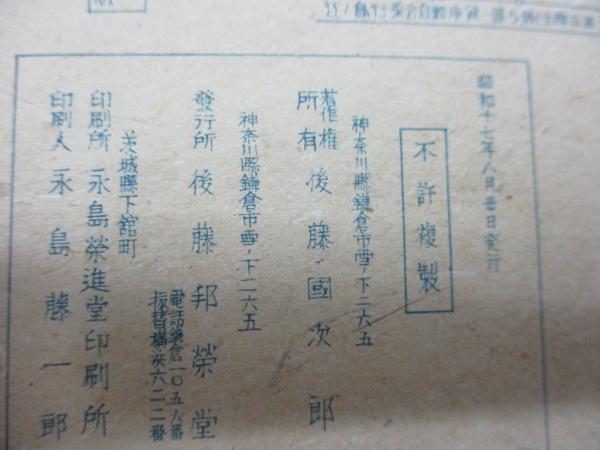 昭和十七年八月廿日発行
不許複製
神奈川縣鎌倉市雪ノ下二六五
著作権所有 後藤國次郎
神奈川縣鎌倉市雪ノ下二六五
發行所 後藤邦榮堂
電話鎌倉一〇五六番
振替横浜六二二番
茨城縣下舘町
印刷所 永島榮進堂印刷所
印刷人 永島藤一郎